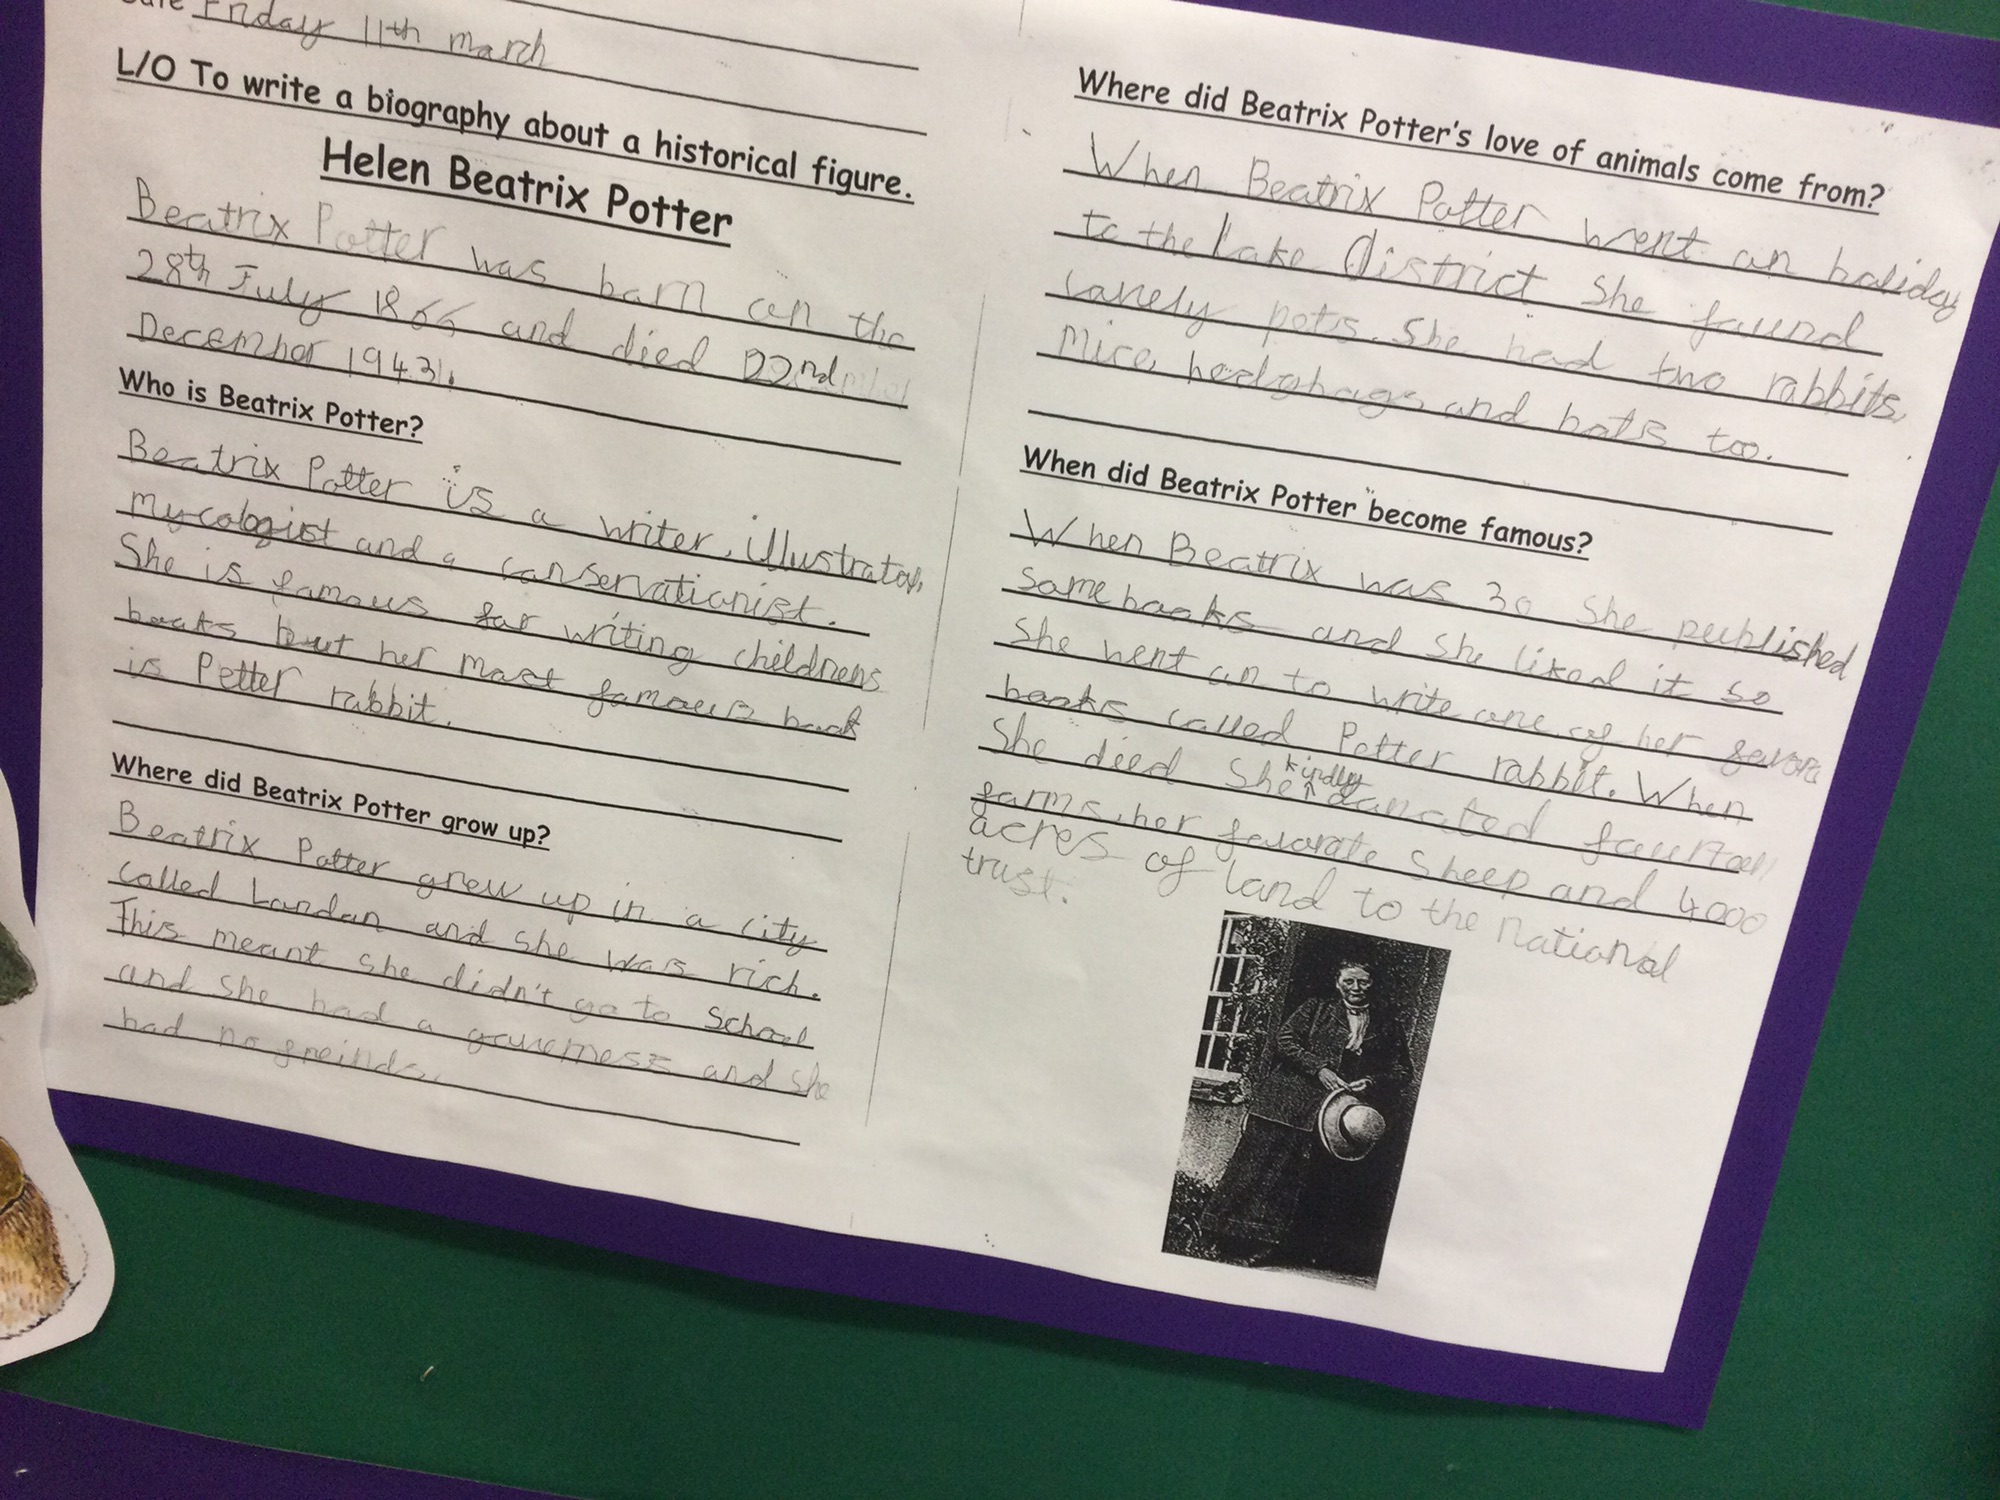 Date Friday 11th march
L/O To write a biography about a historical figure.
Helen Beatrix Potter
Beatrix Potter was born on the
28th July 1866 and died 22nd
December 1943.
Who is Beatrix Potter?
Beatrix Potter is a writer, illustrator,
mycologist and a conservationist.
She is famous for writing childrens
books but her most famous book
is Petter rabbit.
Where did Beatrix Potter grow up?
Beatrix Potter grew up in a city
called London and she was rich.
This meant she didn't go to School
and she had a governess and she
had no freinds.
Where did Beatrix Potter's love of animals come from?
When Beatrix Potter went on holiday
to the Lake District She found
lonely pets. She had two rabbits,
mice, hedghogs and bats too.
When did Beatrix Potter become famous?
When Beatrix was 30 She published
some books and She liked it so
She went on to write one of her
books called Petter rabbit. When
She died She kindly donated fourteen
farms, her favorate Sheep and 4000
acres of land to the national
trust.